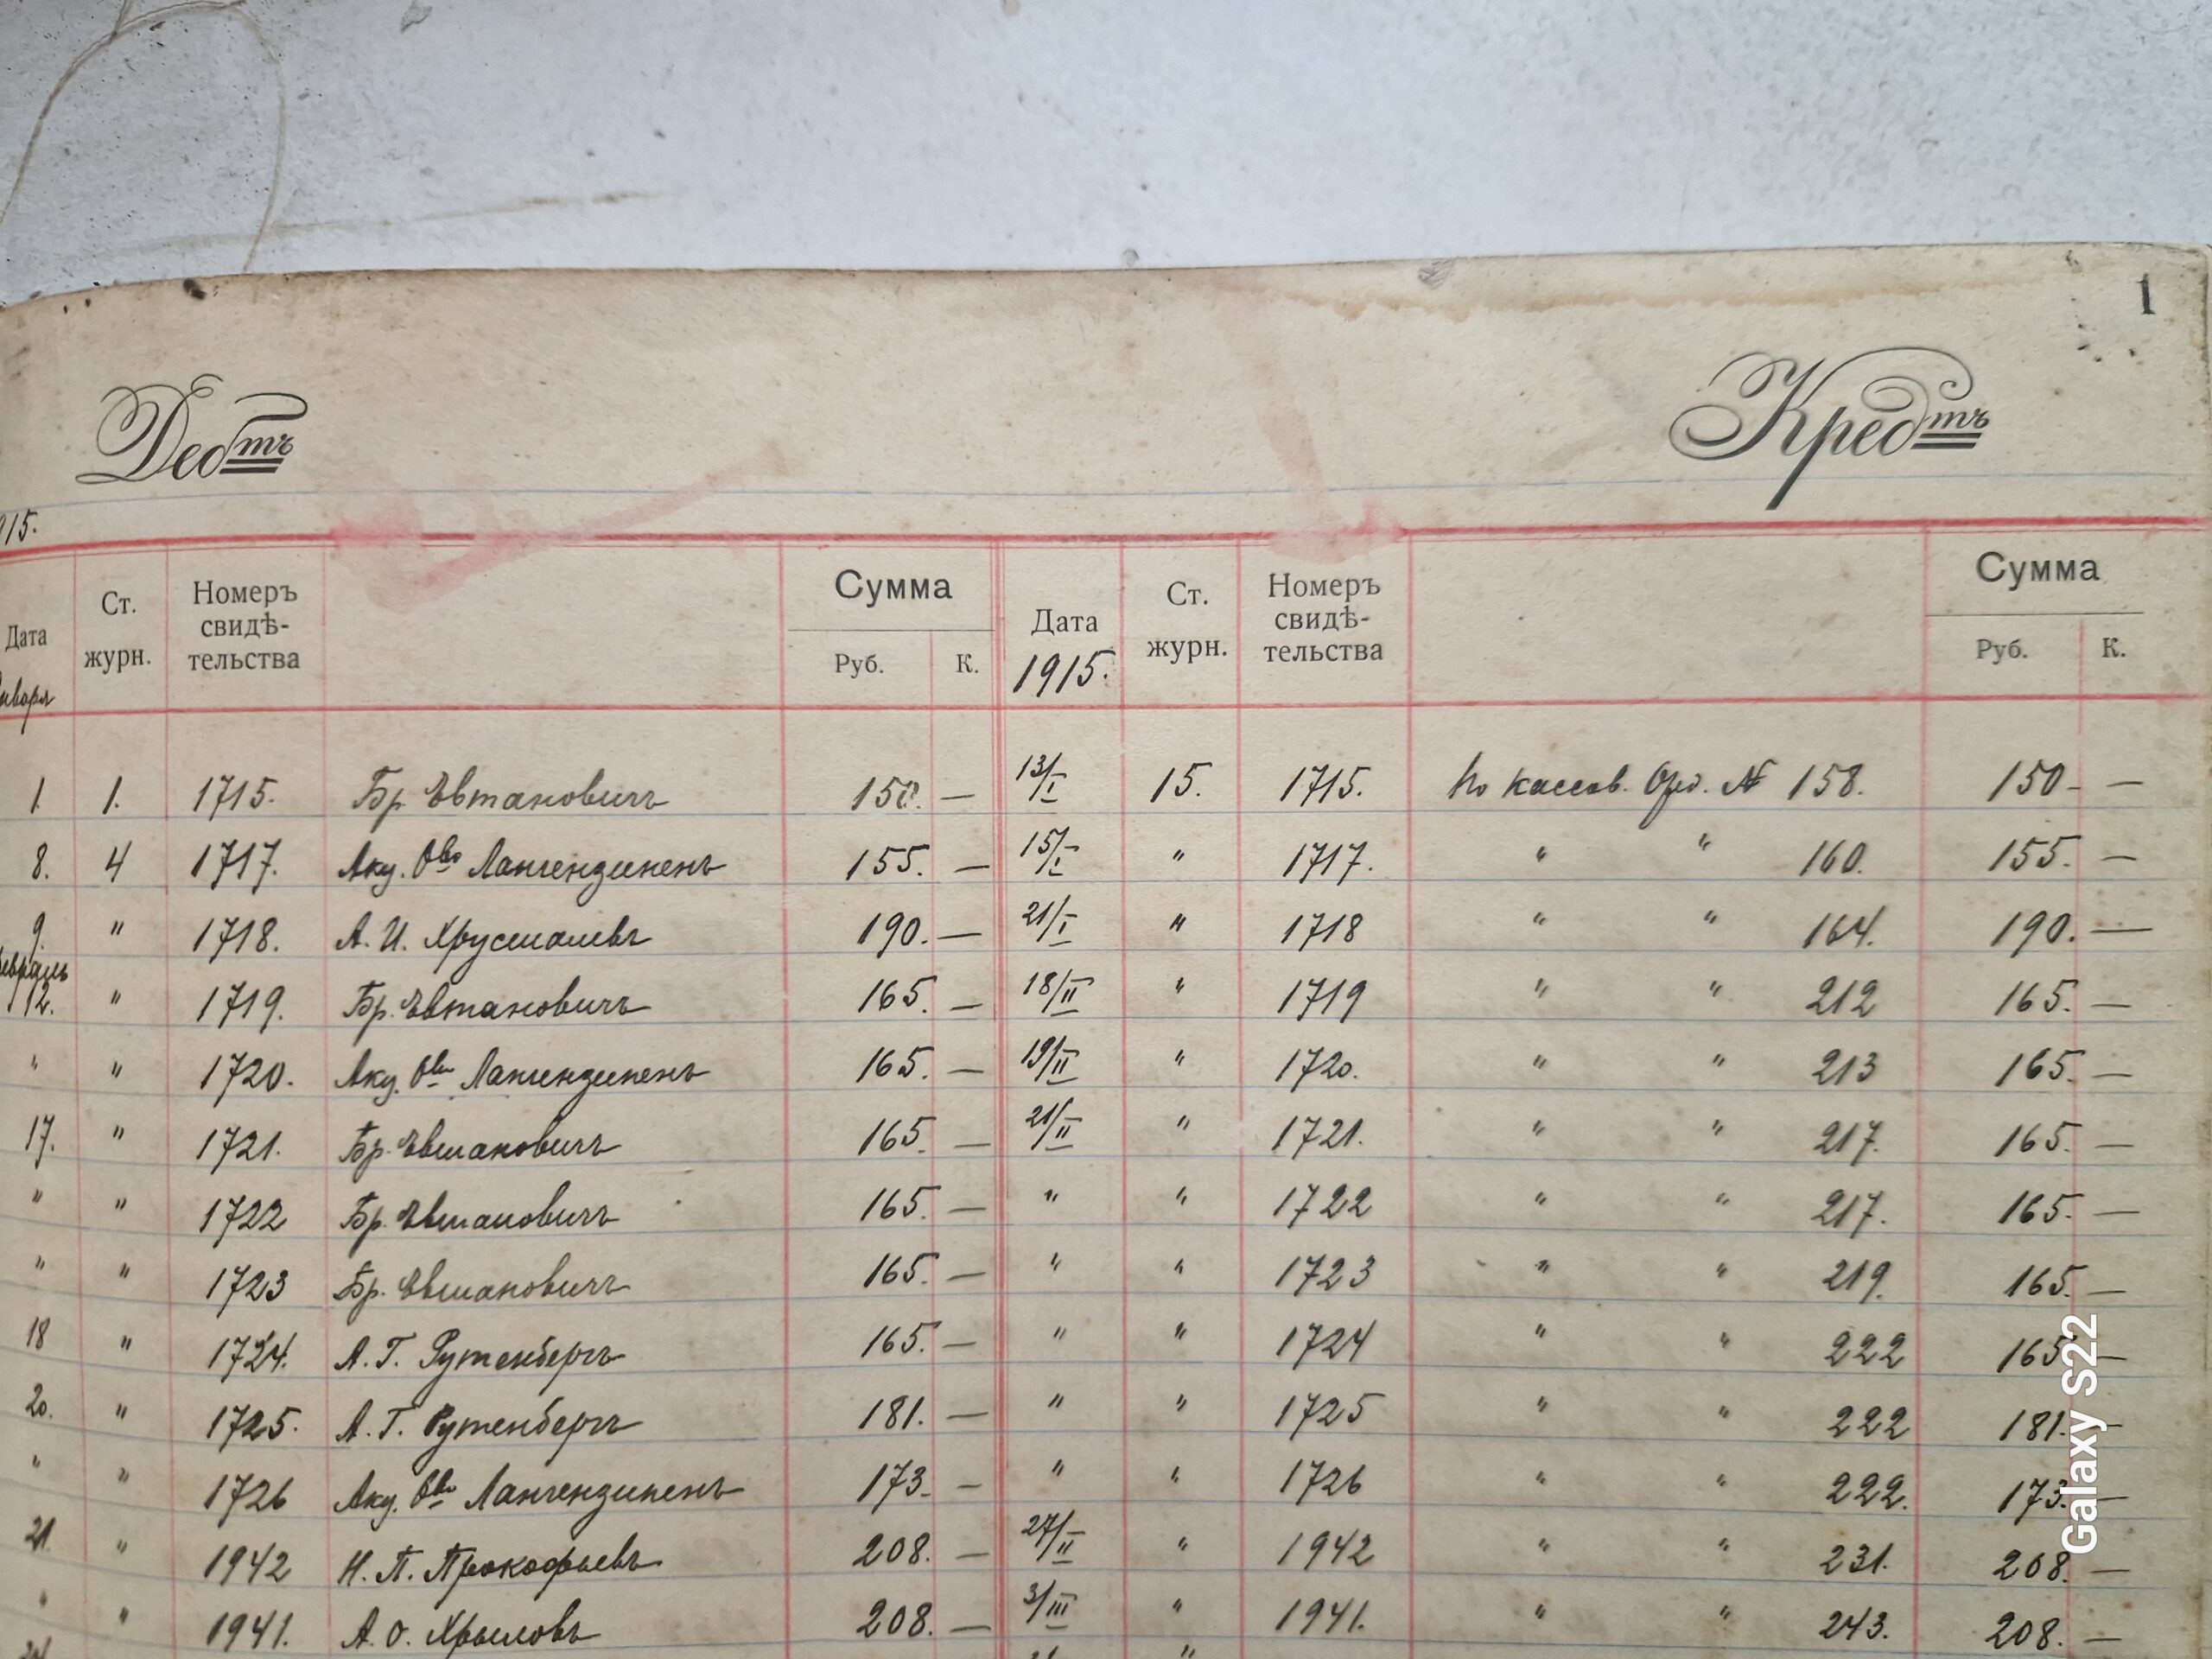 1
Дебтъ Кредтъ
915.
Дата Ст. журн. Номеръ свидѣ-тельства Сумма Руб. К. Дата 1915. Ст. журн. Номеръ свидѣ-тельства Сумма Руб. К.
января
1. 1. 1715. Бр. Евтановичъ 150. — 13/I 15. 1715. По кассов. Орд. № 158. 150 - —
8. 4 1717. Акц. О-во Лангензипенъ 155. — 15/I " 1717. " " 160. 155. —
9. " 1718. А. И. Хрусталевъ 190. — 21/I " 1718 " " 164. 190. —
февраль
12. " 1719. Бр. Евтановичъ 165. — 18/II " 1719 " " 212 165. —
" " 1720. Акц. О-во Лангензипенъ 165. — 19/II " 1720. " " 213 165. —
17. " 1721. Бр. Евтановичъ 165. — 21/II " 1721. " " 217. 165. —
" " 1722 Бр. Евтановичъ 165. — " " 1722 " " 217. 165. —
" " 1723 Бр. Евтановичъ 165. — " " 1723 " " 219. 165. —
18 " 1724. А. Г. Рутенбергъ 165. — " " 1724 " " 222 165 —
20. " 1725. А. Г. Рутенбергъ 181. — " " 1725 " " 222 181. —
" " 1726 Акц. О-во Лангензипенъ 173. — " " 1726 " " 222. 173. —
21. " 1942 Н. П. Прокофьевъ 208. — 27/II " 1942 " " 231. 208. —
" " 1941. А. О. Крыловъ 208. — 3/III " 1941. " " 243. 208. —
Galaxy S22